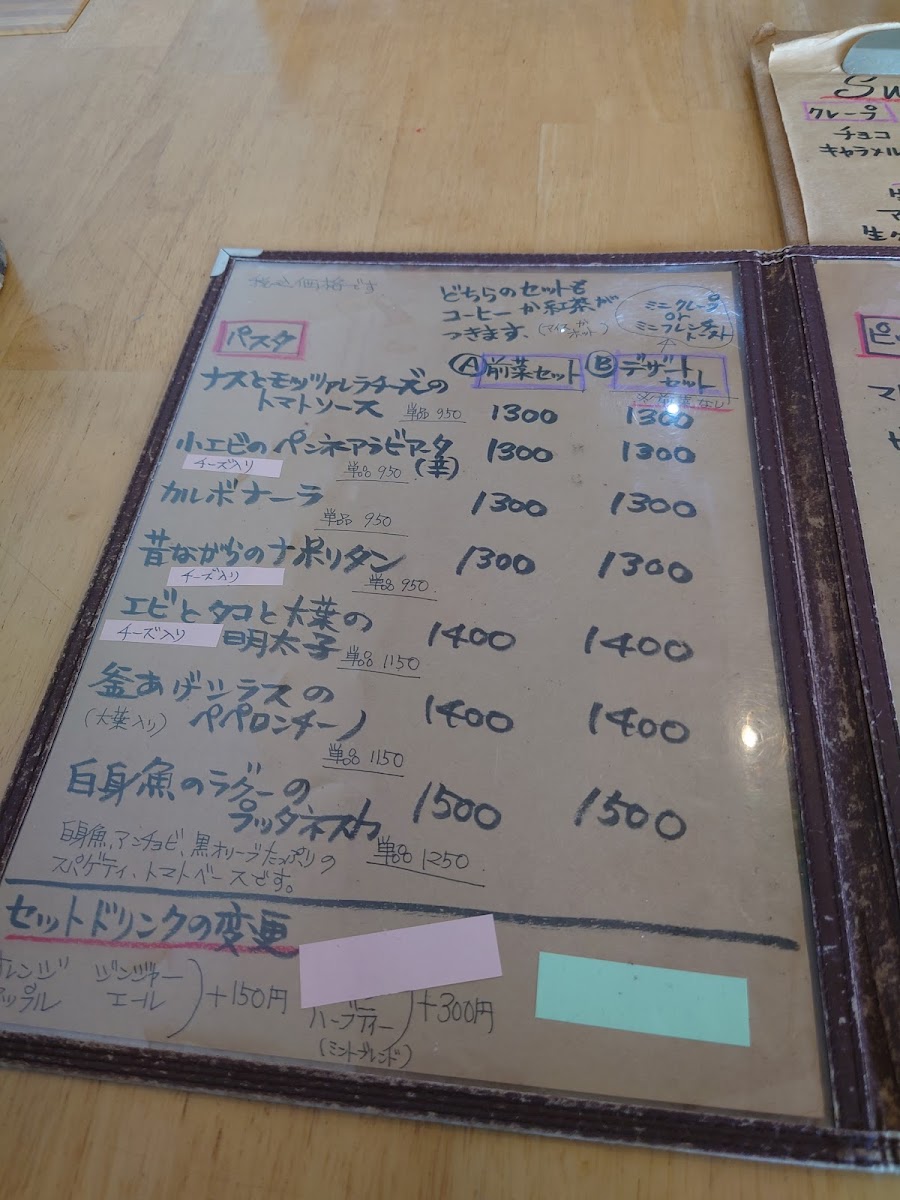 Su
クレープ
チョコ
キャラメル
税込価格です
どちらのセットも
コーヒーか紅茶が
つきます。
ミニクレープ
or
ミニフレンチ
トースト
パスタ
Ⓐ 前菜セット Ⓑ デザート
セット
ナスとモッツァレラチーズの
トマトソース 単品 950 1300 1300
小エビのペンネアラビアータ 1300 1300
チーズ入り 単品 950 (辛)
カルボナーラ 1300 1300
単品 950
昔ながらのナポリタン 1300 1300
チーズ入り 単品 950
エビとタコと大葉の 1400 1400
チーズ入り 明太子 単品 1150
釜あげシラスの 1400 1400
(大葉入り) ペペロンチーノ
単品 1150
白身魚のラグーの 1500 1500
プッタネスカ
白身魚、アンチョビ、黒オリーブたっぷりの 単品 1250
スパゲティ、トマトベースです。
セットドリンクの変更
オレンジ ジンジャー
アップル エール +150円
ハーブティー +300円
(ミントブレンド)